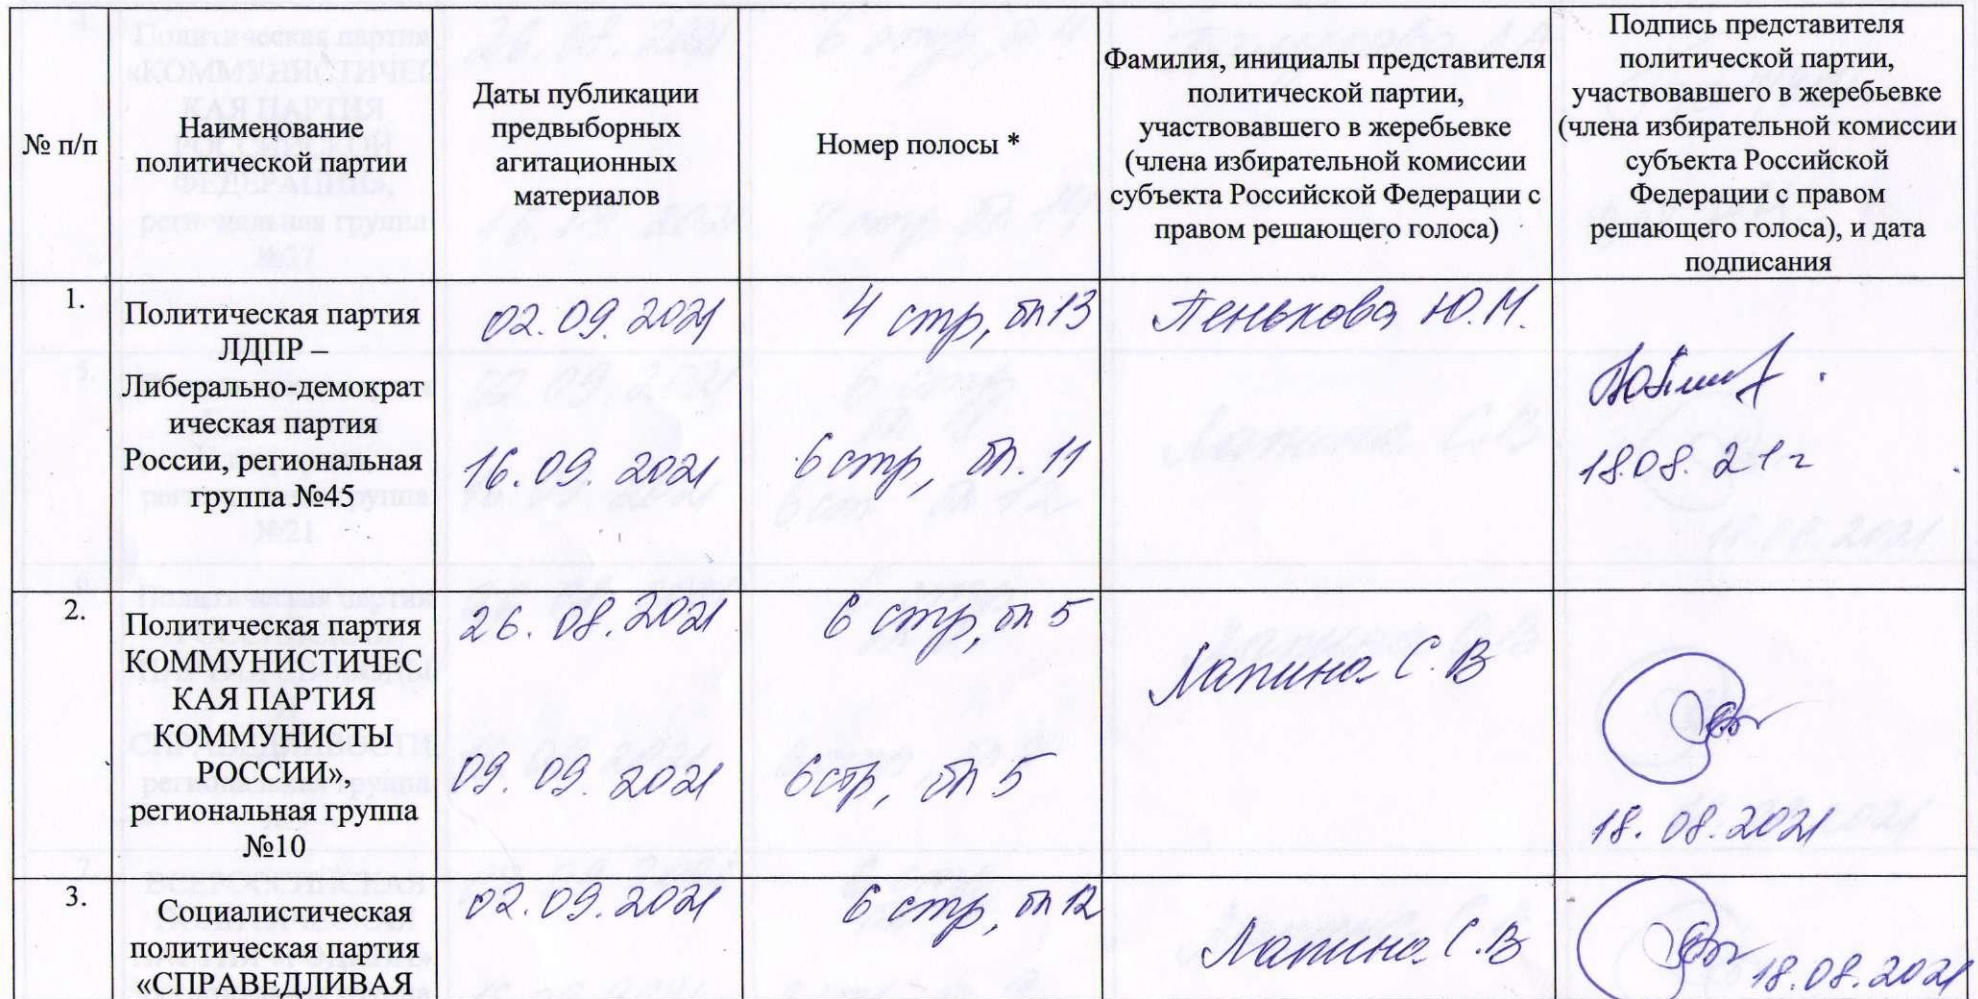 № п/п
Наименование
политической партии
Даты публикации
предвыборных
агитационных
материалов
Номер полосы *
Фамилия, инициалы представителя
политической партии,
участвовавшего в жеребьевке
(члена избирательной комиссии
субъекта Российской Федерации с
правом решающего голоса)
Подпись представителя
политической партии,
участвовавшего в жеребьевке
(члена избирательной комиссии
субъекта Российской
Федерации с правом
решающего голоса), и дата
подписания
1.
Политическая партия
ЛДПР –
Либерально-демократ
ическая партия
России, региональная
группа №45
02.09.2021
16.09.2021
4 стр, бл 13
6 стр, бл. 11
Пенькова Ю.М.
18.08.21г
2.
Политическая партия
КОММУНИСТИЧЕС
КАЯ ПАРТИЯ
КОММУНИСТЫ
РОССИИ»,
региональная группа
№10
26.08.2021
09.09.2021
6 стр, бл 5
6 стр, бл 5
Лапина С.В
18.08.2021
3.
Социалистическая
политическая партия
«СПРАВЕДЛИВАЯ
02.09.2021
6 стр, бл 12
Лапина С.В
18.08.2021